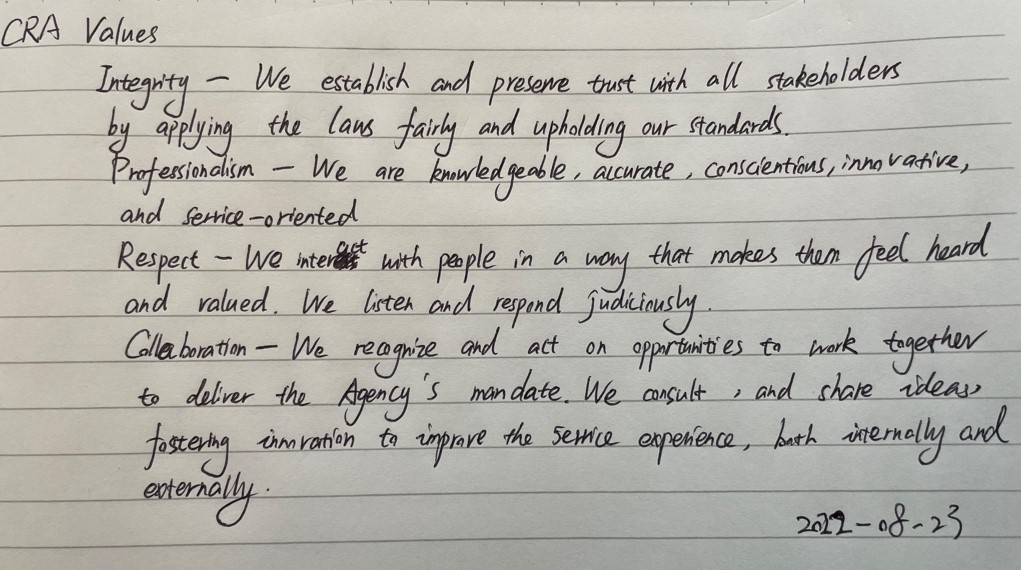 CRA Values
Integrity – We establish and preserve trust with all stakeholders
by applying the laws fairly and upholding our standards.
Professionalism – We are knowledgeable, accurate, conscientious, innovative,
and service-oriented
Respect – We interact with people in a way that makes them feel heard
and valued. We listen and respond judiciously.
Collaboration – We recognize and act on opportunities to work together
to deliver the Agency's mandate. We consult, and share ideas,
fostering innovation to improve the service experience, both internally and
externally.
2022-08-23